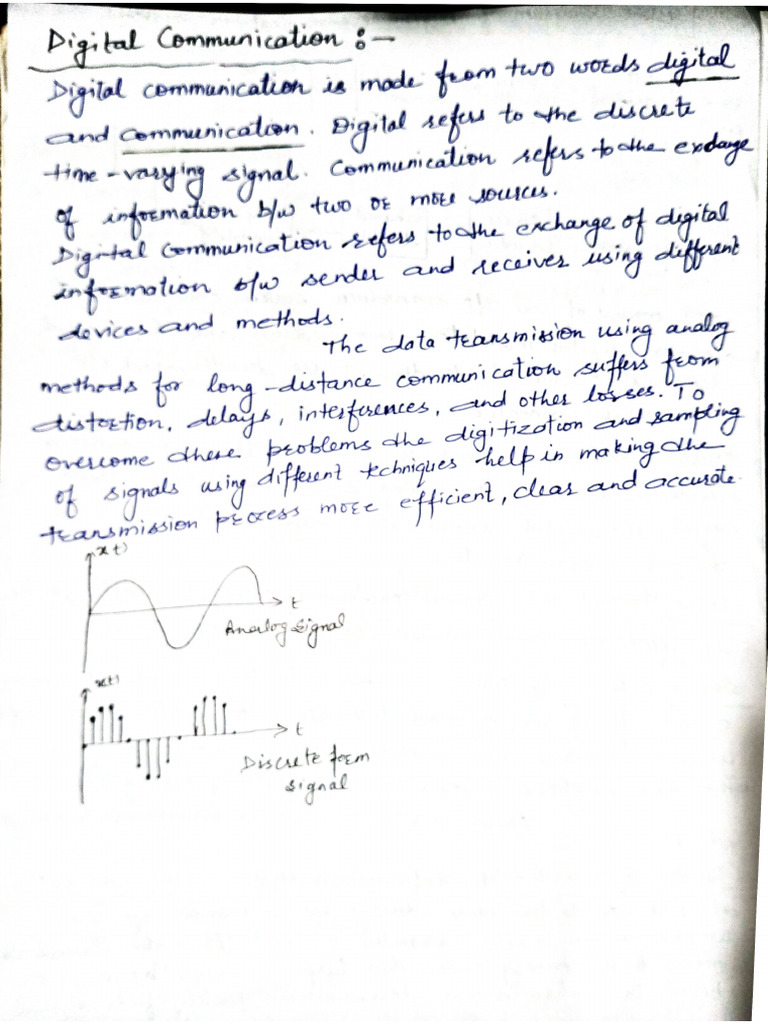 Digital Communication :-
Digital communication is made from two words digital
and communication. Digital refers to the discrete
time-varying signal. Communication refers to the exchange
of information b/w two or more sources.
Digital Communication refers to the exchange of digital
information b/w sender and receiver using different
devices and methods.
The data transmission using analog
methods for long-distance communication suffers from
distortion, delays, interferences, and other losses. To
overcome these problems the digitization and sampling
of signals using different techniques help in making the
transmission process more efficient, clear and accurate.
x t)
t
Analog signal
x(t)
t
Discrete form
signal